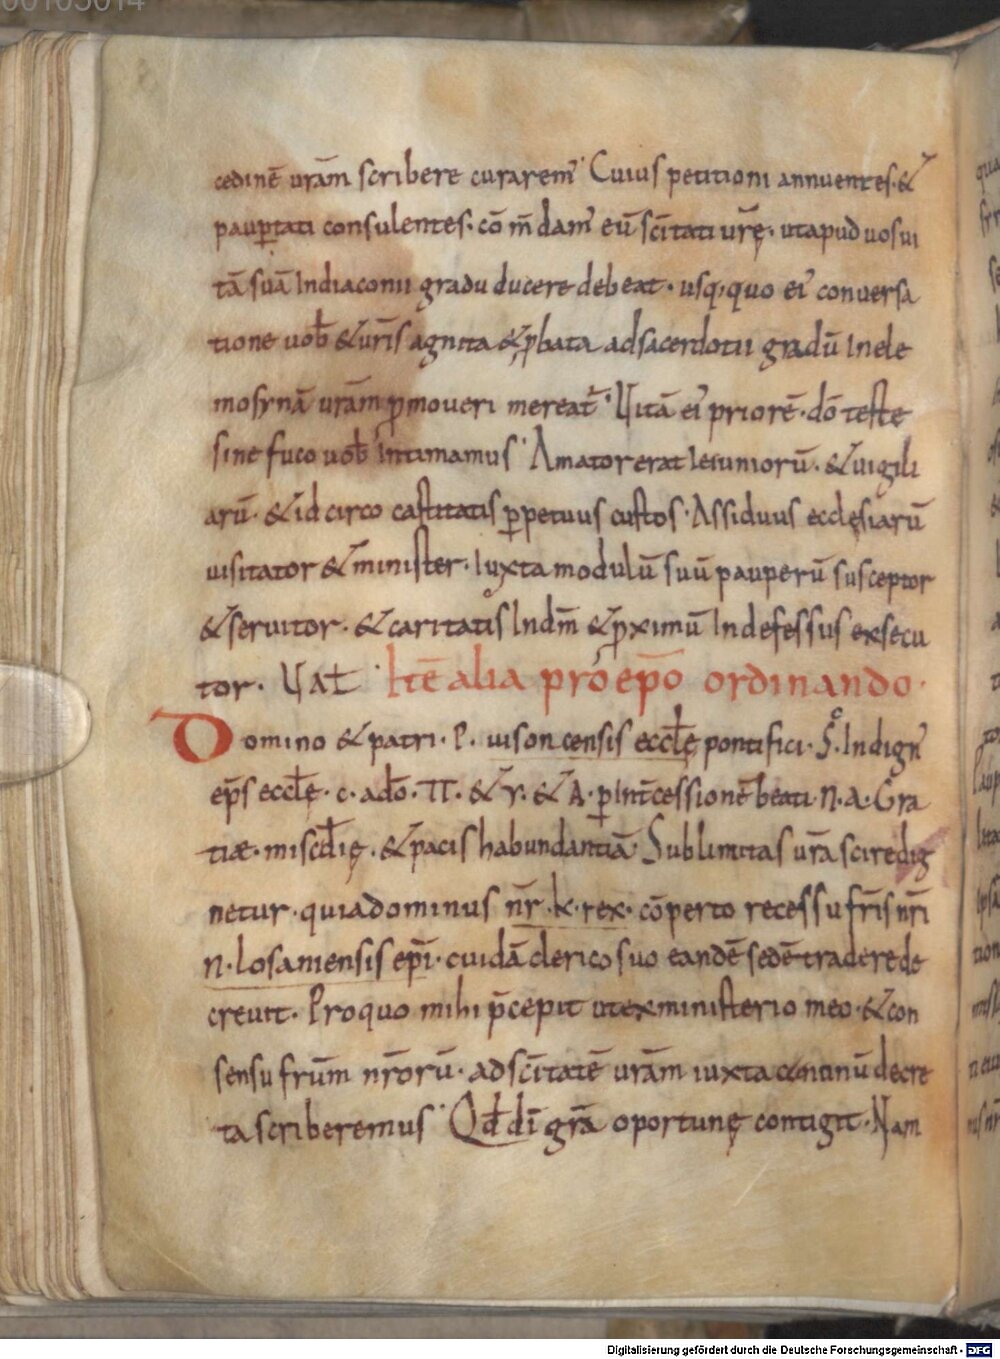 00105014
cedinē urām scribere curarem̄ Cuius petitioni annuentes · &
pauꝑtati consulentes · cō m̄dam̄ eū sc̄itati urē̜ · utapud uos ui
tā suā Indiaconii gradu ducere debeat · usq; quo ei᷎ conuersa
tione uob̄ & ur̄is agnita & ꝓbata adsacerdotii gradū Inele
mosynā urām ꝓmoueri mereat᷎ᷣ · Uitā ei᷎ priorē · dō teste
sine fuco uob̄ Intimamus Amator erat Ieiuniorū · & uigili
arū · & idcirco castitatis ꝑpetuus custos · Assiduus ecclęsiarū
uisitator & minister · Iuxta modulū suū pauperū susceptor
& seruitor · & caritatis Indm̄ & ꝓximū Indefessus exsecu
tor · Uaƚ Itē alia pro ep̄o ordinando ·
Domino & patri · P · uisoncensis eccƚę pontifici · S · Indign᷎
ep̄s eccƚę · c · ad̄o · Π · & Υ · & Α · ꝑ Int̄cessionē beati · N · A · Gra
tiæ · misc̄dię · & pacis habundantiā · Sublimitas ur̄a scire dig
netur · quia dominus nr̄ · k · rex · cōperto recessu fr̄is nr̄i
N · losaniensis ep̄i · cuidā clerico suo eandē sedē tradere de
creuit · Pro quo mihi p̄cepit ut ex ministerio meo · & con
sensu frūm nr̄orū · ad sc̄itatē urām iuxta continū decre
ta scriberemus Qd̄ dī grā oportunę contigit · Nam
Digitalisierung gefördert durch die Deutsche Forschungsgemeinschaft - DFG